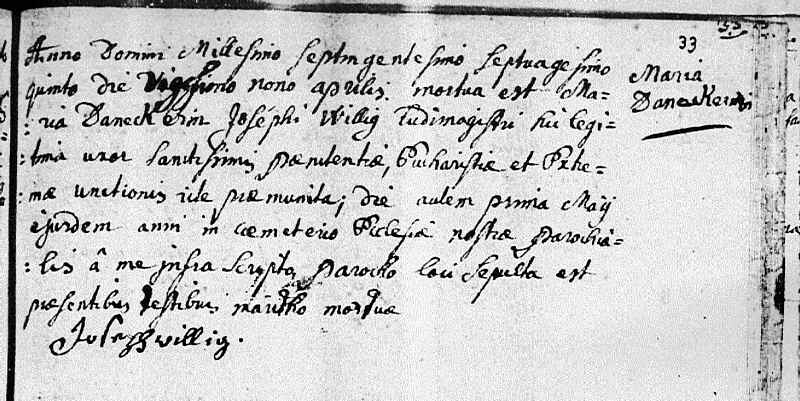 33
Anno Domini Millesimo septingentesimo septuagesimo
quinto die Vigesimo nono aprilis mortua est Ma=
=ria Daneckerin Josephi Willig Ludimagistri hui legi=
=tima uxor sanctissimis pœnitentiæ, Eucharistiæ et Extre=
mæ unctionis rite præmunita; die autem prima Maij
ejusdem anni in cœmeterio Ecclesiæ nostræ parochia=
=lis â me infra scripto parocho loci sepulta est
præsentibus testibus marito mortuæ
Joseph willig.
Maria
Daneckerin